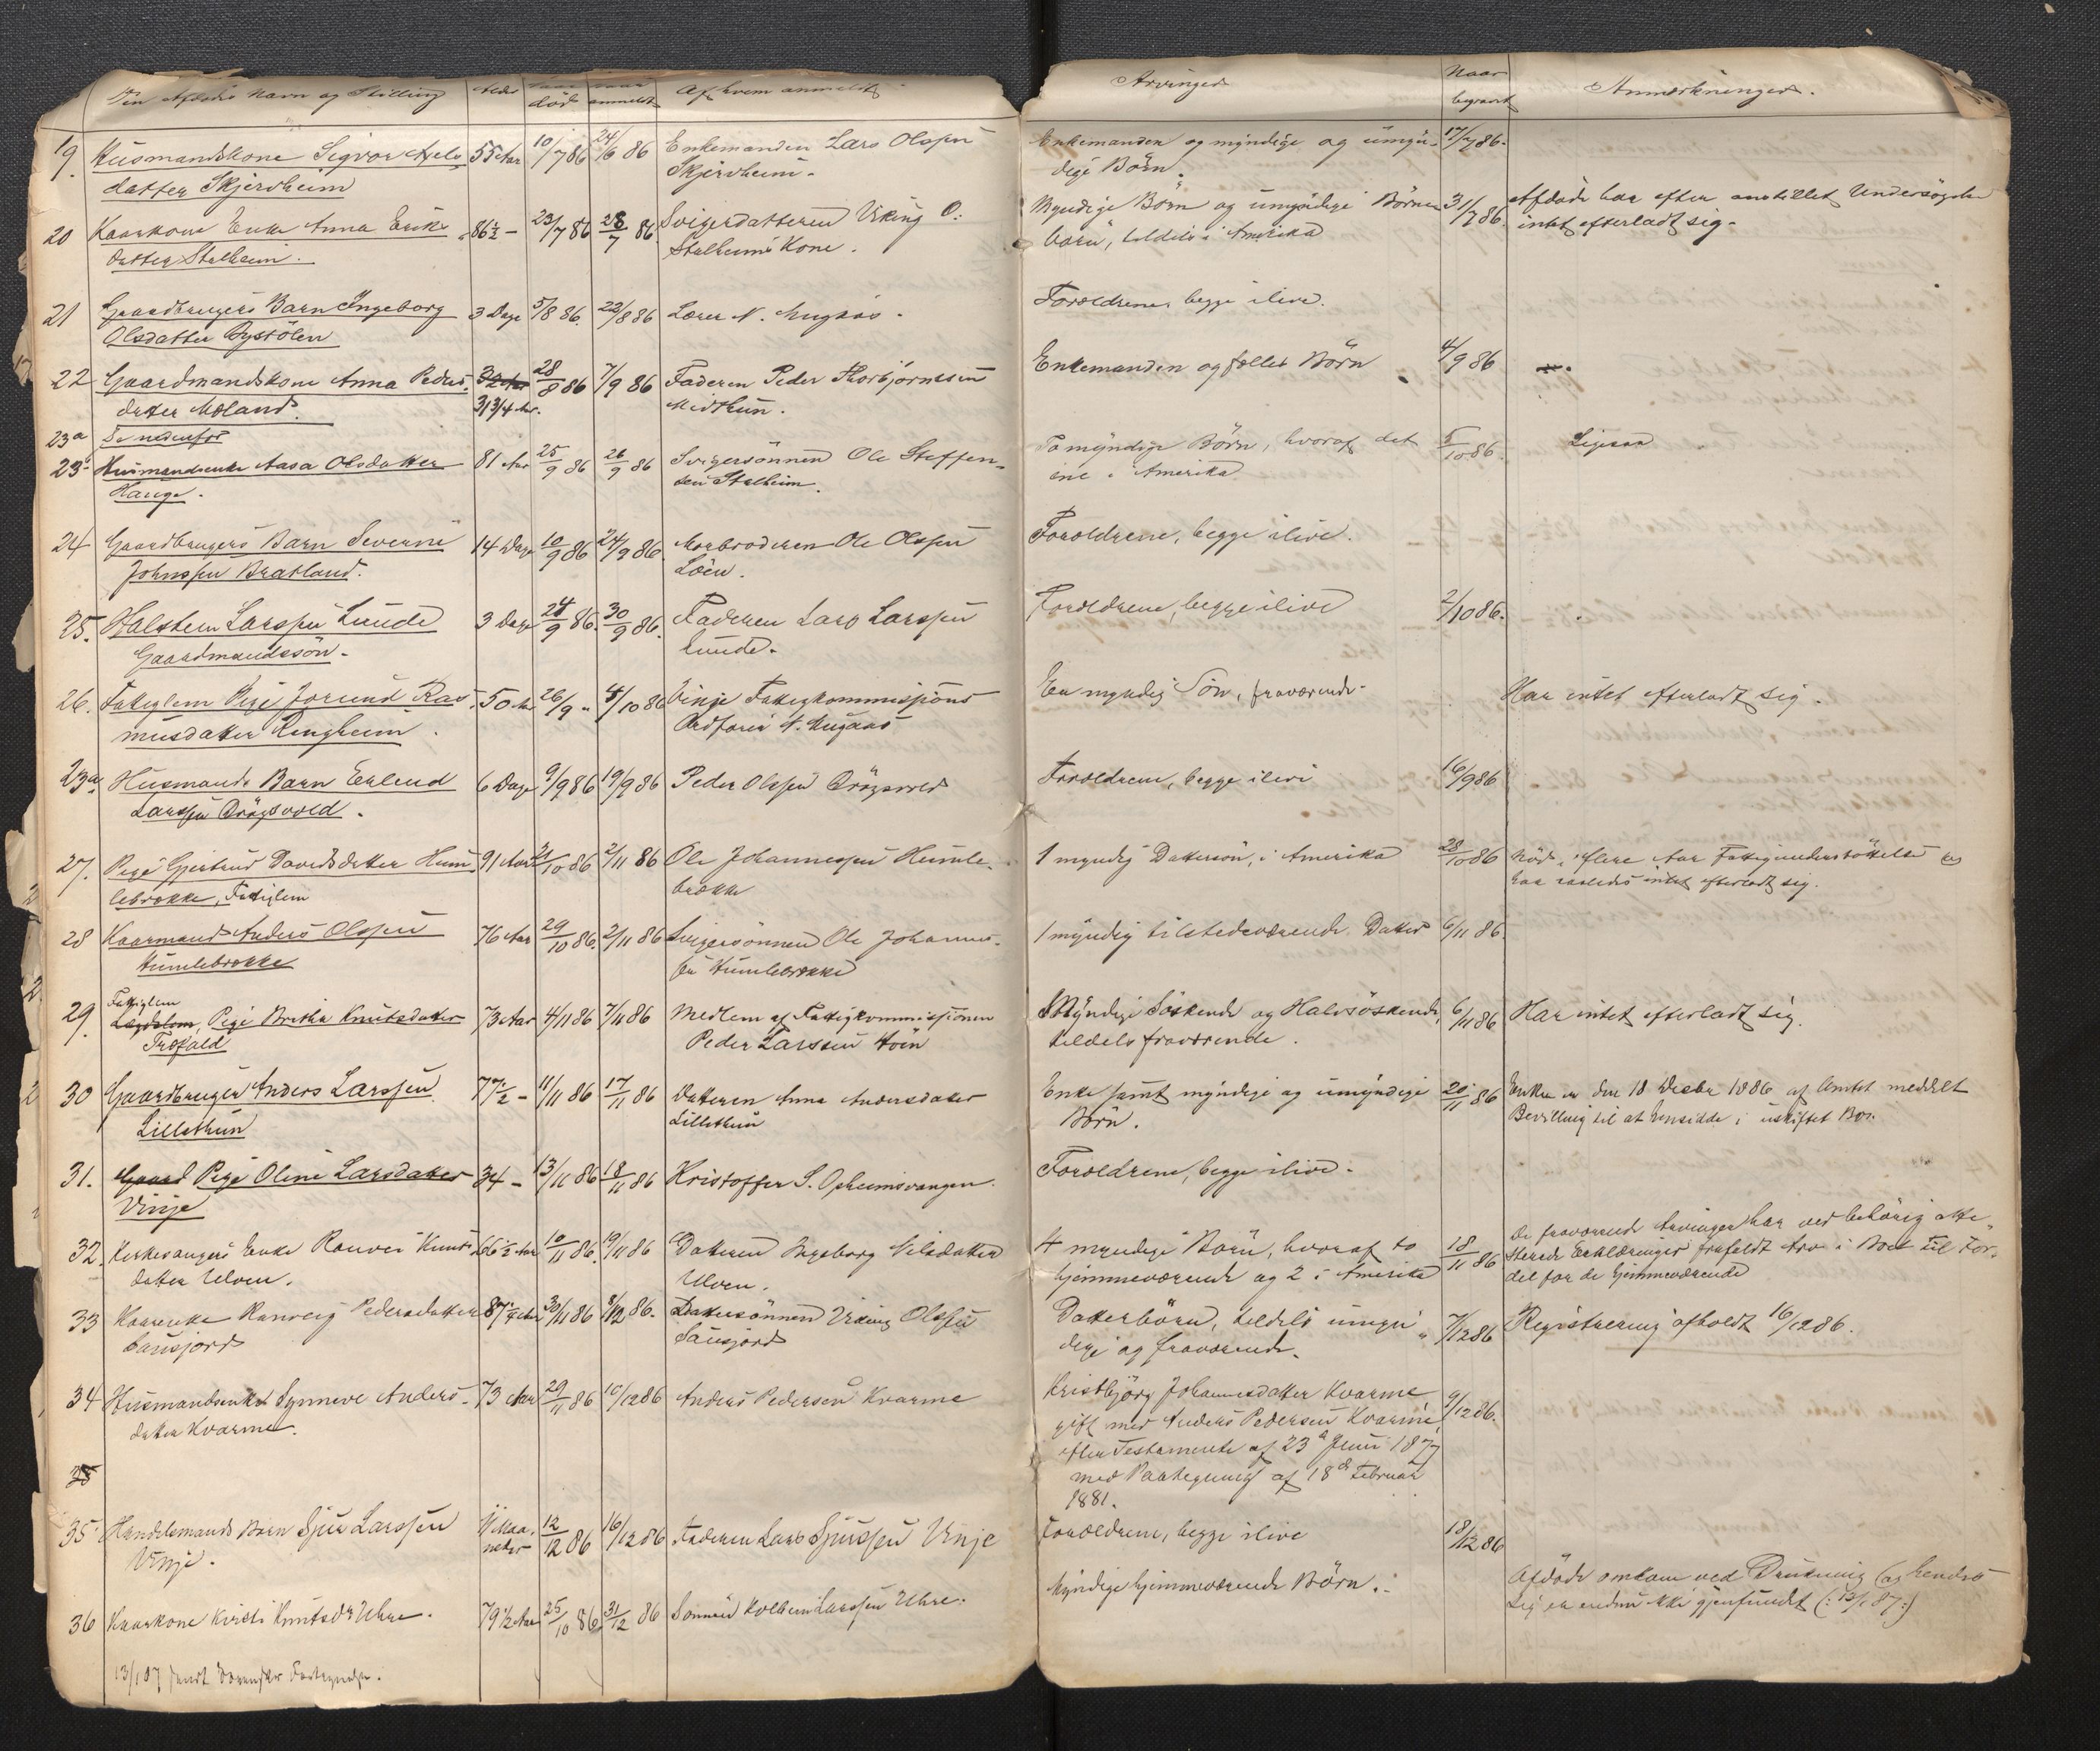 Den Afdødes Navn og Stilling Alder Naar død Naar anmeldt Af hvem anmeldt
19. Husmandskone Sigvor Axels 55 Aar 10/7 86 24/6 86 Enkemanden Lars Olssen
datter Skjerdheim Skjerdheim.
20 Kaarkone Enke Anna Eriks 86½ - 23/7 86 28/7 86 Svigerdatteren Viking O:
datter Stalheim. Stalheims Kone.
21 Gaardbrugers Barn Ingeborg 3 Dage 5/8 86. 22/8 86 Lærer N. Mugaas.
Olsdatter Bystölen
22 Gaardmandskone Anna Peders 28/8 86 7/9 86 Faderen Peder Thorbjørnssen
datter Mæland. 31 3/4 Aar. Midthun.
23a Se nedenfor
23. Husmandsenke Aasa Olsdatter 81 Aar 25/9 86 26/9 86 Svigersönnen Ole Steffen
Hauge. sen Stalheim.
24 Gaardbrugers Barn Severine 14 Dage 10/9 86 24/9 86. Morbroderen Ole Olssen
Johnssen Bratland. Löen.
25. Halstein Larssen Lunde 3 Dage 24/9 86. 30/9 86. Faderen Lars Larssen
Gaardmandssön. Lunde.
26. Fattiglem Pige Jorund Ras 50 Aar 26/9 " 4/10 86 Vinje Fattigkommissjons
musdatter Ringheim. Ordfører N. Mugaas
23a. Husmands Barn Erlend 6 Dage 9/9 86 19/9 86 Peder Olssen Drögsvold
Larssen Drögsvold.
27. Pige Gjertrud Davidsdatter Hum 91 Aar 21/10 86 2/11 86 Ole Johannessen Humle
lebrække, Fattiglem brække
28 Kaarmand Anders Olssen 76 Aar 29/10 86. 2/11 86 Svigersönnen Ole Johannes
Humlebrække sen Humlebrække
29. Fattiglem
Lægdslem, Pige Britha Knutsdatter 73 Aar 4/11 86 7/11 86 Medlem af Fattigkommissjonen
Trefald Peder Larssen Höin
30 Gaardbruger Anders Larssen 77½ - 11/11 86 17/11 86 Datteren Anna Andersdatter
Lillethun Lillethun
31. Gaard Pige Oline Larsdatter 34 - 13/11 86 18/11 86 Kristoffer S. Opheimsvangen.
Vinje
32. Kirkesangers Enke Ranvei Knuts 66½ Aar 10/11 86. 19/11 86 Datteren Ingeborg Nilsdatter
datter Ulven. Ulven.
33 Kaarenke Ranveig Pedersdatter 87¼ Aar 30/11 86 8/12 86. Dattersönnen Viking Olssen
Sausjord Sausjord
34 Husmandsenke Synneve Anders 73 Aar 29/11 86 10/12 86 Anders Pedersen Kvarme
datter Kvarme.
35
35. Handelsmands Barn Sjur Larssen 11 Maaneder 12/12 86 16/12 86 Faderen Lars Sjurssen Vinje
Vinje.
36 Kaarkone Kirsti Knutsdr Uhre. 79½ Aar 25/10 86. 31/12 86 Sonnen Kolbein Larssen Uhre.
13/1 87 sendt Fortegnelse.
Arvinger Naar begravet Anmærkninger.
Enkemanden og myndige og umyn 17/7 86.
dige Börn.
Myndige Börn og umyndige Börne 31/7 86. Afdøde har efter anstillet Undersøgelse
börn, tildels i Amerika intet efterladt sig.
Forældrene, begge ilive.
Enkemanden og fælles Börn. 4/9 86
To myndige Börn, hvoraf det 5/10 86. Ligesaa
ene i Amerika
Forældrene, begge ilive.
Forældrene, begge ilive 2/10 86.
En myndig Sön, fraværende. Har intet efterladt sig.
Forældrene, begge ilive 16/9 86
1 myndig Dattersön, i Amerika 28/10 86 Nöd i flere Aar Fattigunderstöttelse og
har saaledes intet efterladt sig.
1 myndig tilstedeværende Datter 6/11 86.
Myndige Söskende og Halvsöskende, 6/11 86 Har intet efterladt sig.
tildels fraværende.
Enke samt myndige og umyndige 20/11 86 Enken er den 18 Decbr 1886 af Amtet meddelt
Börn. Bevilling til at hensidde i uskiftet Bo.
Forældrene, begge ilive.
4 myndige Börn, hvoraf to 18/11 86 De fraværende Arvinger har ved behörig atte
hjemmeværende og 2 i Amerika sterede Erklæringer frafaldt Arv i Boet til For
del for de hjemmeværende
Datterbörn, tildels umyn 7/12 86 Registrering afholdt 16/12 86.
dige og fraværende.
Kristbjörg Johannesdatter Kvarme 9/12 86.
gift med Anders Pedersen Kvarme
efter Testamente af 23d Juni 1877
med Paategning af 18d Februar
1881.
Forældrene, begge ilive 18/12 86
Myndige hjemmeværende Börn. Afdöde omkom ved Drukning og hendes
Lig er endnu ikke gjenfundet (: 13/1 87 :)